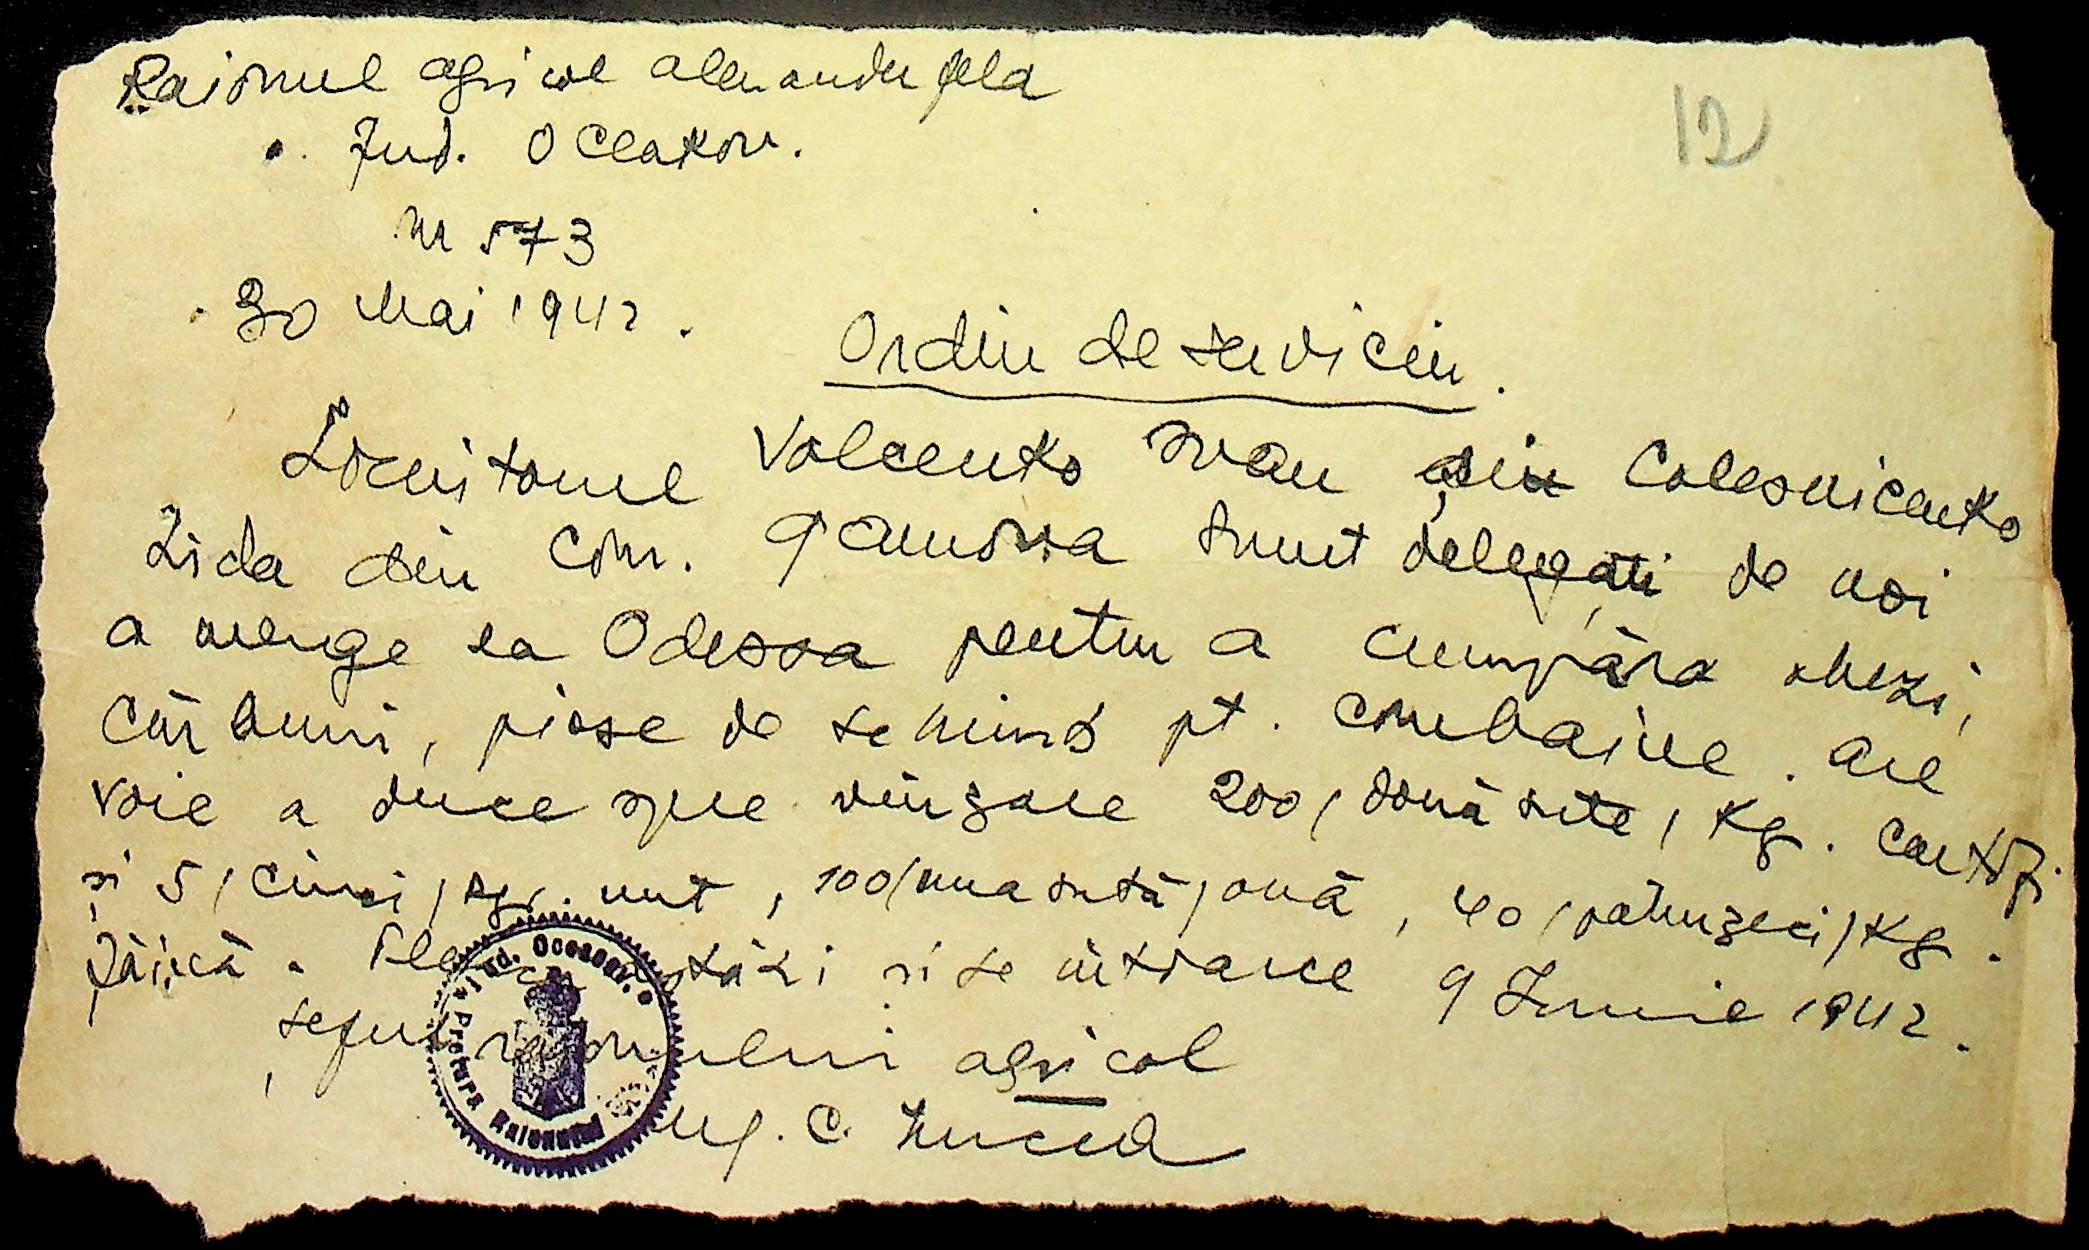 Raionul agricol alexanderfeld
12
Jud. Oceakov.
Nr 573
30 Mai 1942.
Ordin de serviciu.
Locuitorul Volcenko Ivan și Colesnicenko
Lida din Com. sunt delegați de noi
a merge la Odessa pentru a cumpăra obezi,
cărbuni, piese de schimb pt. combaine. are
voie a duce spre vînzare 200/două sute/kg. cartofi
și 5/cinci/kgr. unt, 100/una sută/ouă, 40/patruzeci/kg.
făină. Pleacă astăzi și se întoarce 9 Iunie 1942.
șeful raionului agricol
Ing. C.
Jud. Oceacov
Pretura Raionului